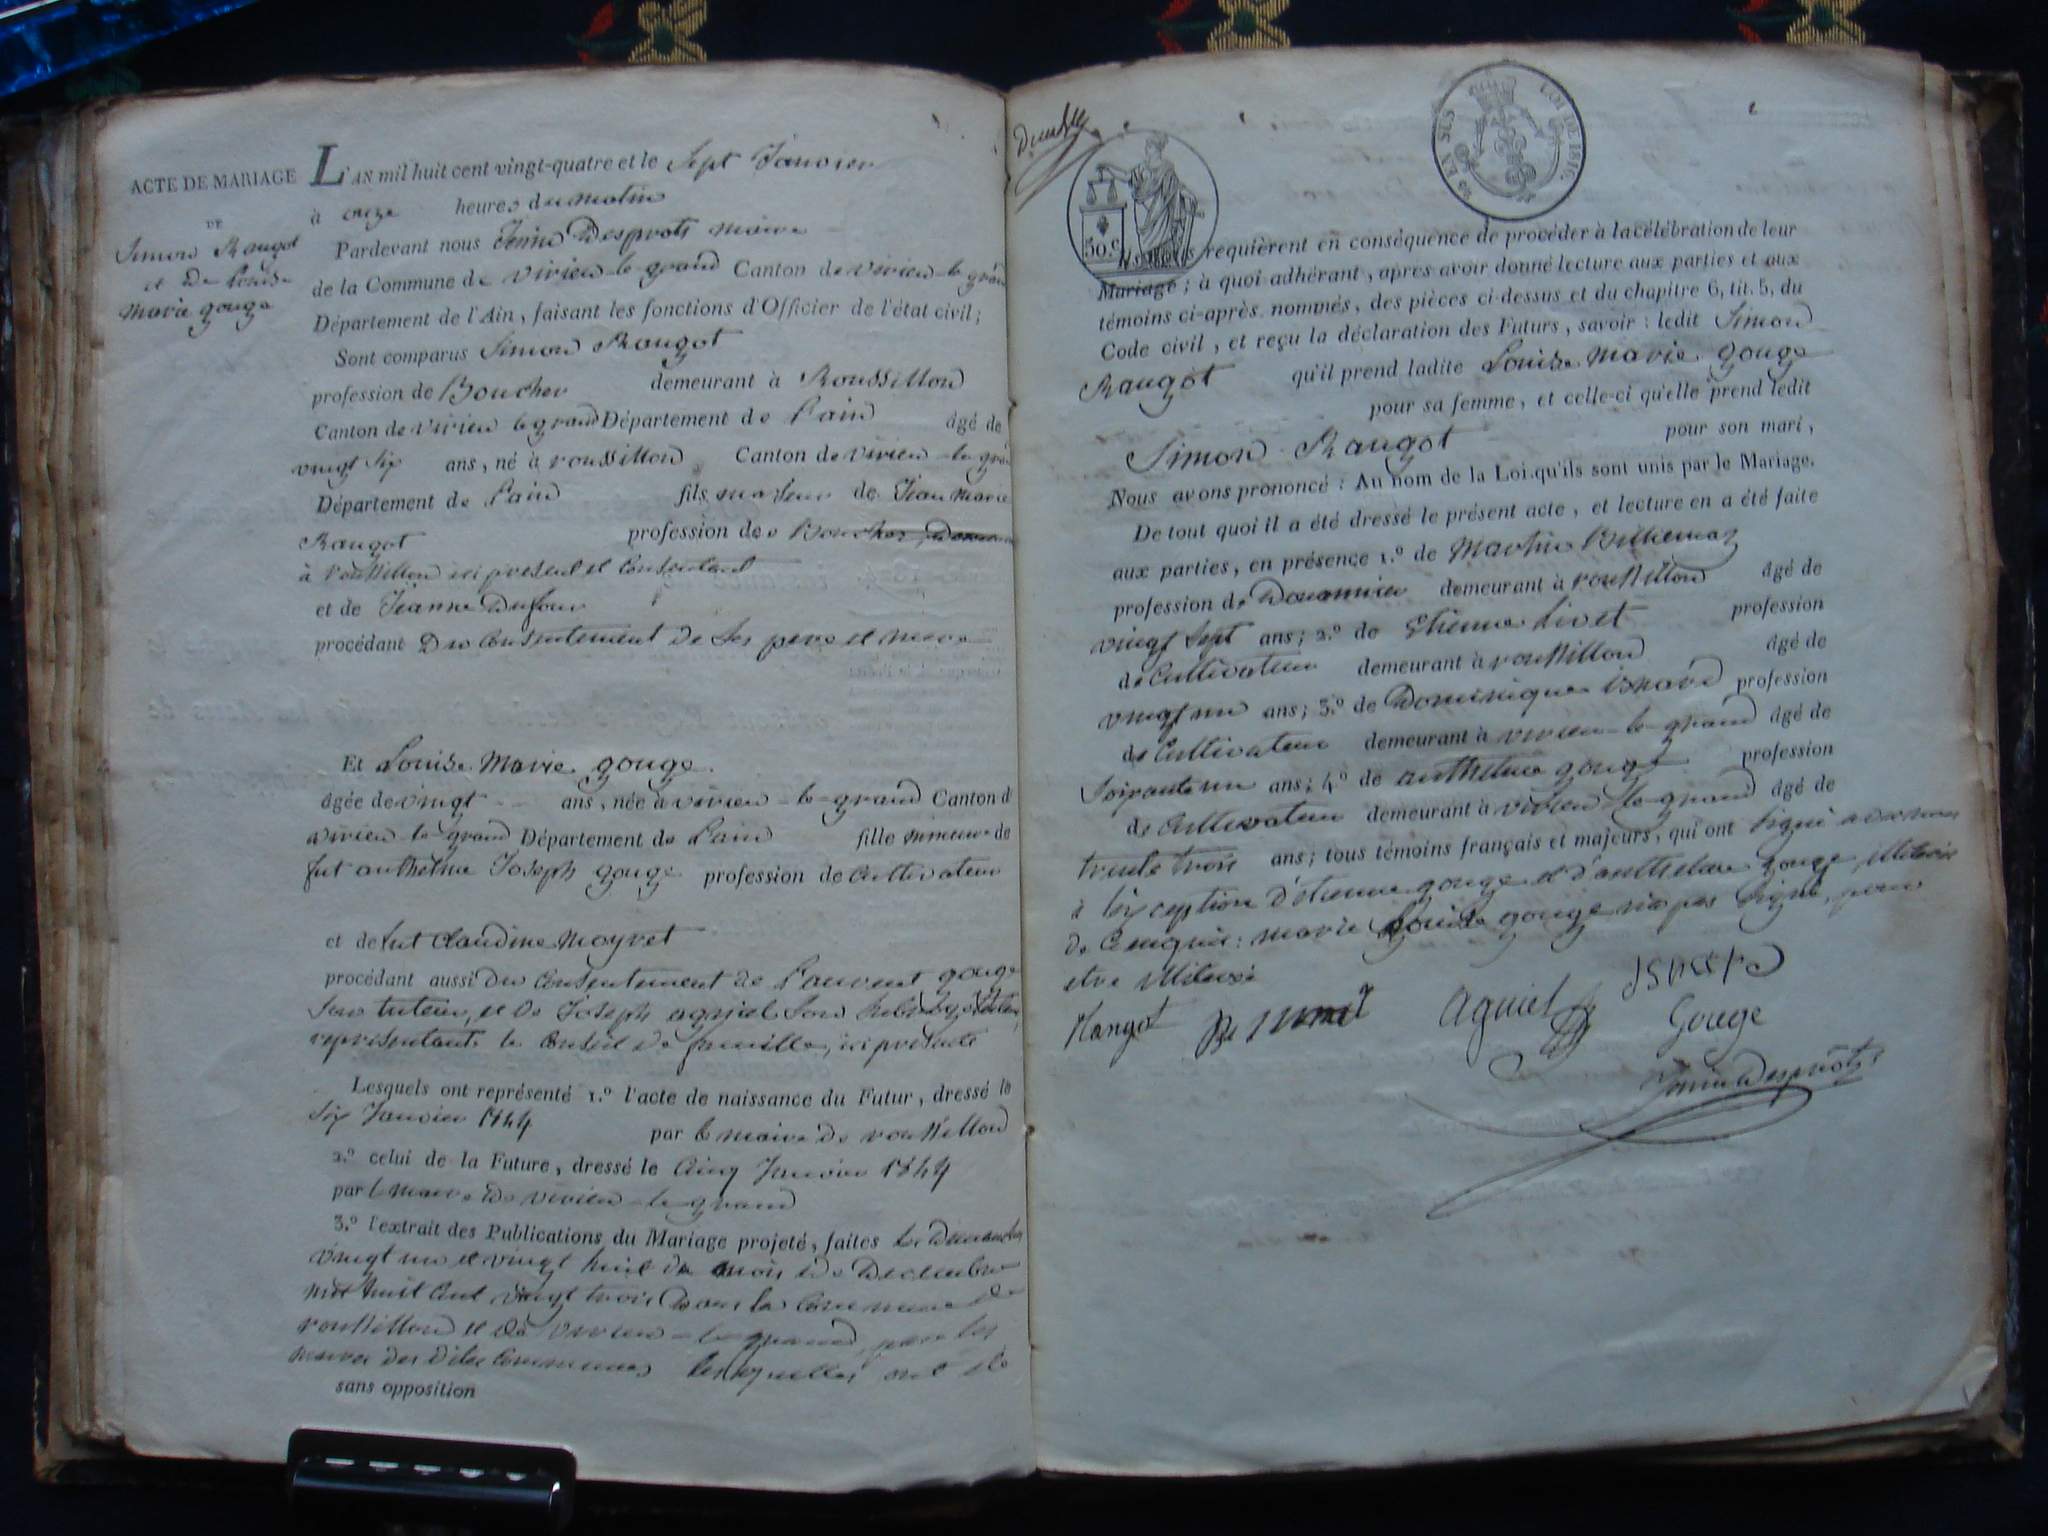 ACTE DE MARIAGE
DE
Simon Rangot
et De Louise
Marie gouge
L'AN mil huit cent vingt-quatre et le Sept Janvier
à onze heures du matin
Pardevant nous Desprots maire
de la Commune de virieu-le-grand Canton de virieu-le-grand
Département de l'Ain, faisant les fonctions d'Officier de l'état civil;
Sont comparus Simon Rangot
profession de Boucher demeurant à Roussillon
Canton de virieu le grand Département de l'ain âgé de
vingt six ans, né à roussillon Canton de virieu-le-grand
Département de l'ain fils majeur de Jean Marie
Rangot profession de Boucher
à roussillon ici présent et Consentant
et de Jeanne Dufour
procédant Du Consentement de Ses pere et mere
Et Louise Marie gouge
âgée de vingt ans, née à virieu-le-grand Canton de
virieu-le-grand Département de l'ain fille mineure de
fut anthelme Joseph gouge profession de Cultivateur
et de fut Claudine Moyret
procédant aussi Du Consentement de Laurent gouge
Son tuteur, et De Joseph aguiel Son Subrogé tuteur,
représentant le Conseil de famille, ici présents
Lesquels ont représenté 1.º l'acte de naissance du Futur, dressé le
Six Janvier 1824 par le maire de roussillon
2.º celui de la Future, dressé le Cinq Janvier 1824
par le maire De virieu-le-grand
3.º l'extrait des Publications du Mariage projeté, faites les Dimanches
vingt un et vingt huit du mois de Decembre
mil huit Cent vingt trois Dans la Commune de
roussillon et de virieu-le-grand, par les
maires des Dites Communes lesquelles ont été
sans opposition
50.c
EN SUS
LOI DE 1816.
requièrent en conséquence de procéder à la célébration de leur
Mariage; à quoi adhérant, après avoir donné lecture aux parties et aux
témoins ci-après nommés, des pièces ci-dessus et du chapitre 6, tit. 5, du
Code civil, et reçu la déclaration des Futurs, savoir: ledit Simon
Rangot qu'il prend ladite Louise Marie gouge
pour sa femme, et celle-ci qu'elle prend ledit
Simon Rangot pour son mari,
Nous avons prononcé: Au nom de la Loi qu'ils sont unis par le Mariage.
De tout quoi il a été dressé le présent acte, et lecture en a été faite
aux parties, en présence 1.º de Martin Billiemaz
profession de Douannier demeurant à roussillon âgé de
vingt Sept ans; 2.º de Etienne Livet profession
de Cultivateur demeurant à roussillon âgé de
vingt un ans; 3.º de Dominique isnard profession
de Cultivateur demeurant à virieu-le-grand âgé de
Soixante un ans; 4.º de anthelme gouge profession
de Cultivateur demeurant à virieu-le-grand âgé de
trente trois ans; tous témoins français et majeurs, qui ont Signé avec nous
à l'exception d'étienne gouge et d'anthelme gouge, illitérés
De Ce enquis: marie Louise gouge n'a pas Signé, pour
etre illiterée
Rangot Aguiel
Gouge
Desprots